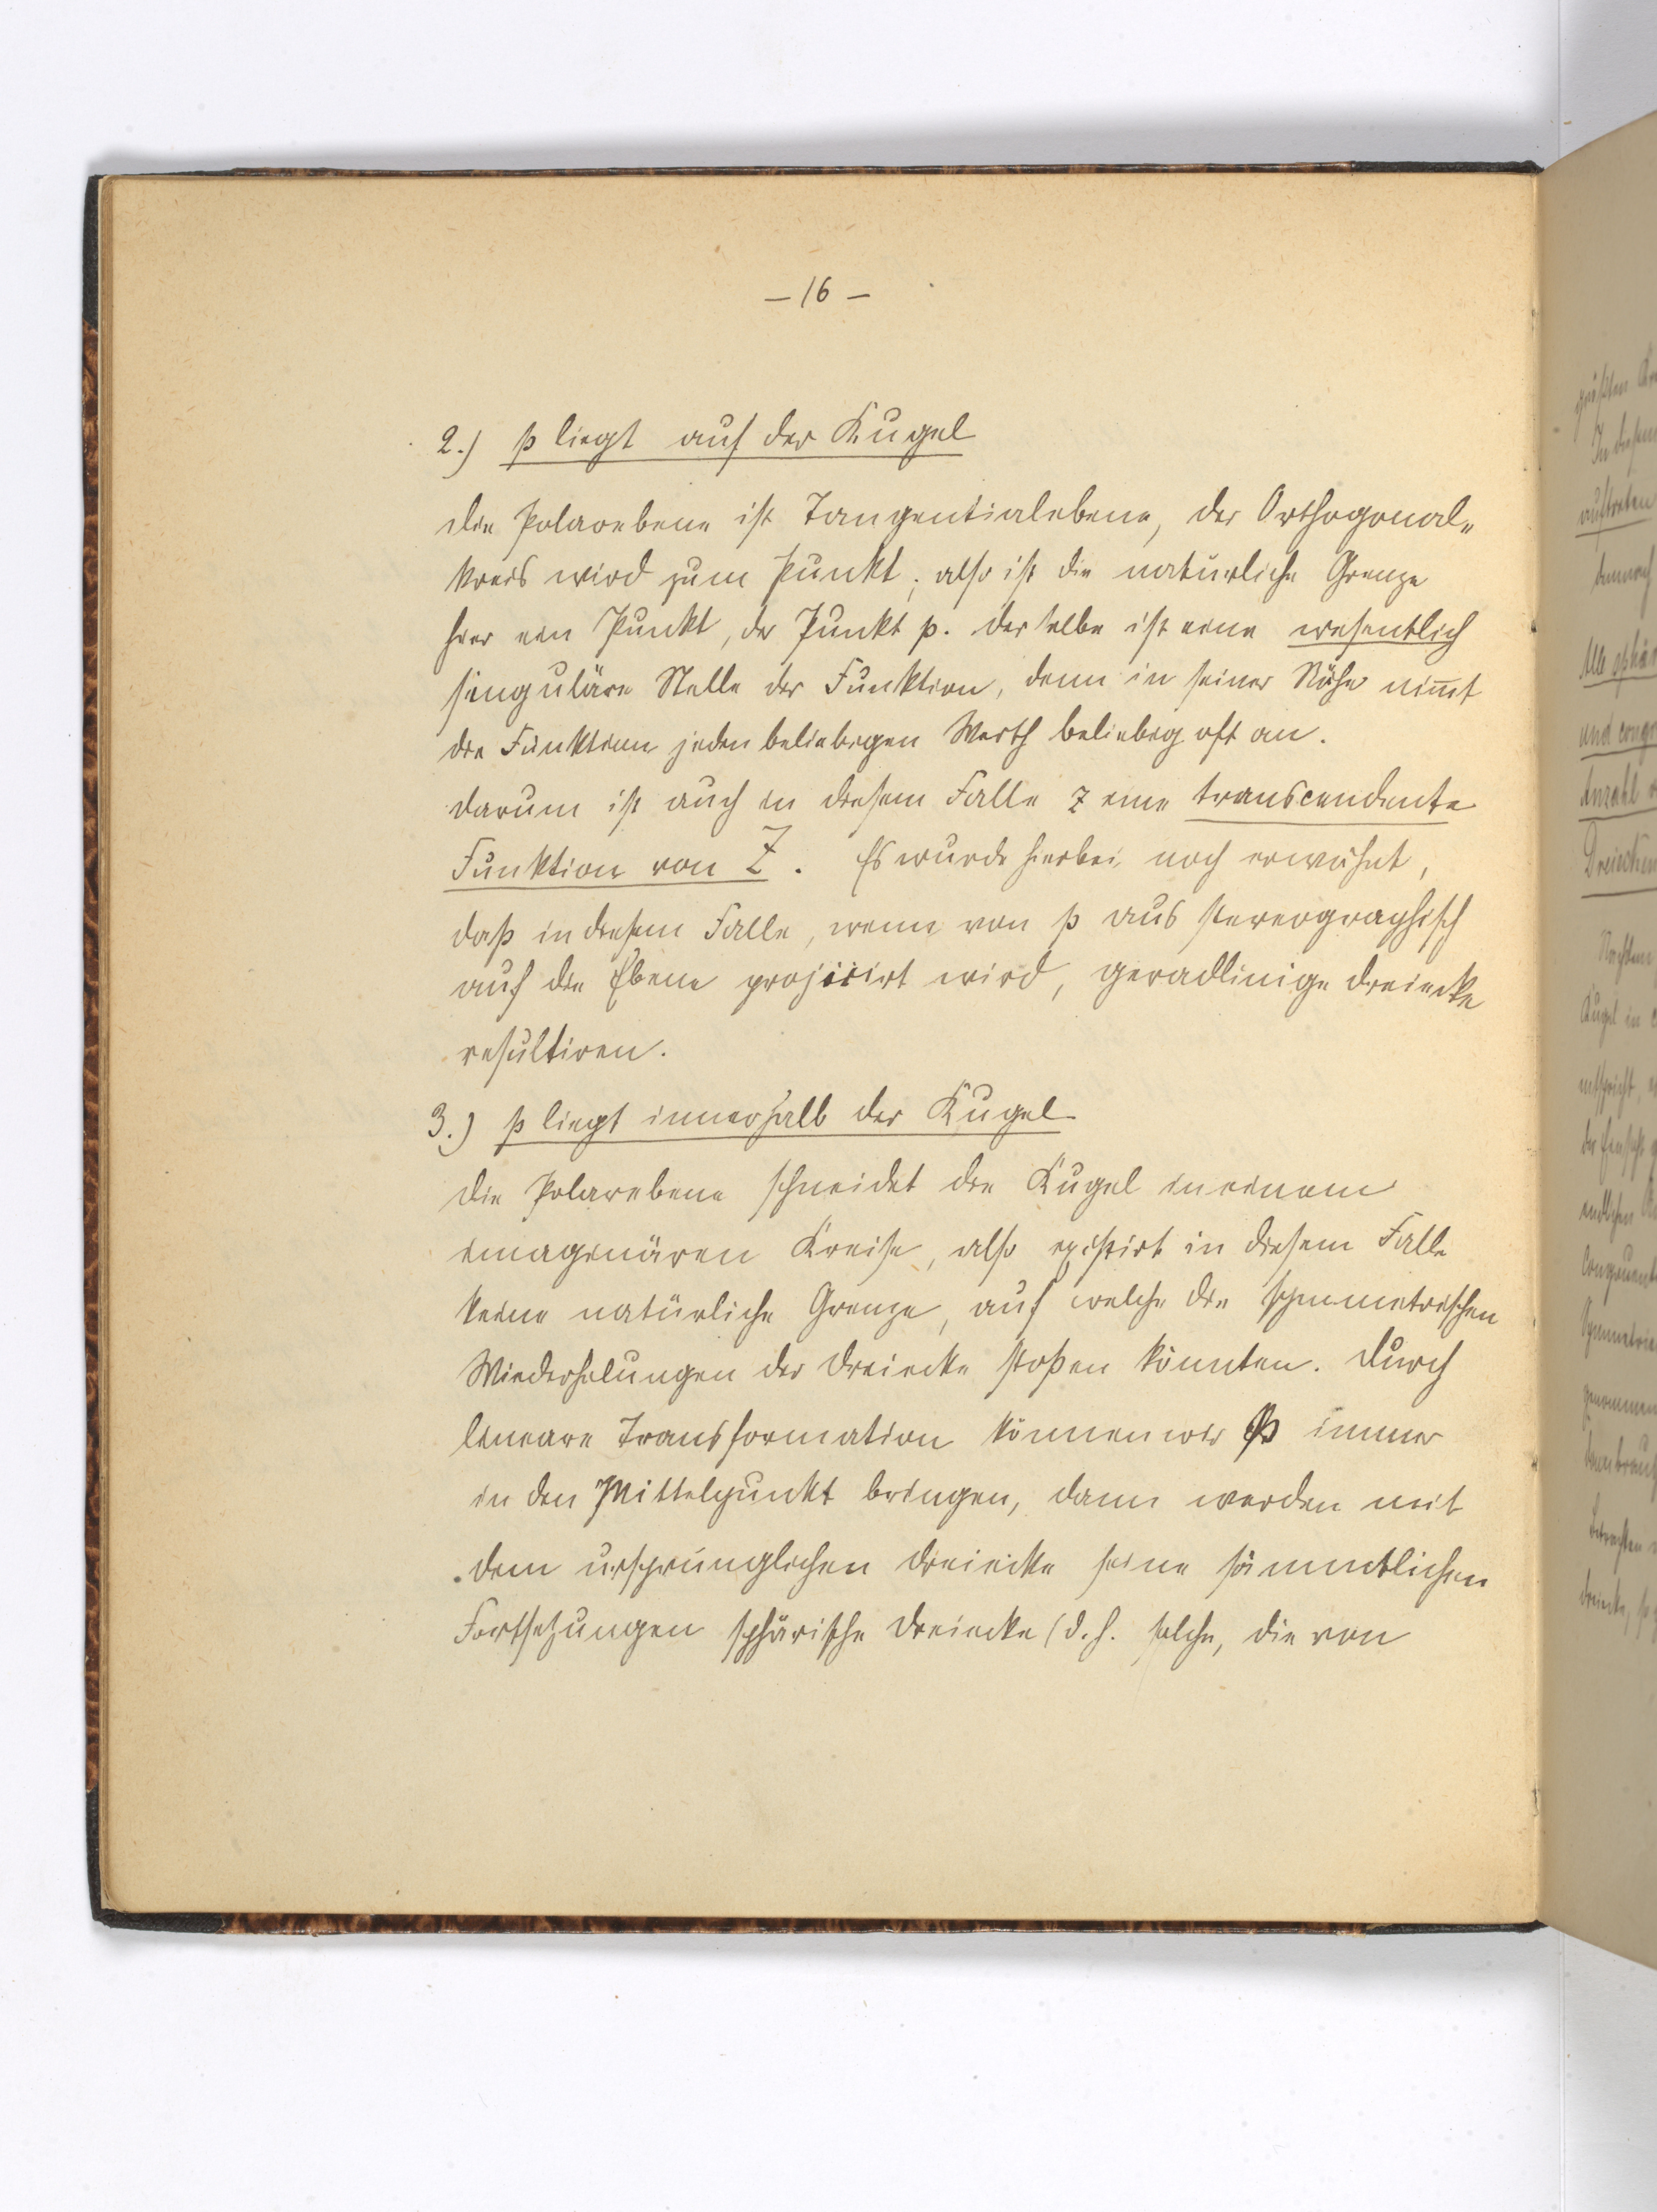 – 16 –
2.) p liegt auf der Kugel
Die Polarebene ist Tangentialebene, der Orthogonal-
kreis wird zum Punkt, also ist die natürliche Grenze
hier ein Punkt, der Punkt p. Derselbe ist eine wesentlich
singuläre Stelle der Funktion, denn in seiner Nähe nim̄t
die Funktion jeden beliebigen Werth beliebig oft an.
Darum ist auch in diesem Falle z eine transcendente
Funktion von Z. Es wurde hierbei noch erwähnt,
daß in diesem Falle, wenn von p aus stereographisch
auf die Ebene projicirt wird, geradlinige Dreiecke
resultiren.
3.) p liegt innerhalb der Kugel
Die Polarebene schneidet die Kugel in einem
imaginären Kreise, also existirt in diesem Falle
keine natürliche Grenze, auf welche die symmetrischen
Wiederholungen der Dreiecke stoßen könnten. Durch
lineare Transformation können wir p immer
in den Mittelpunkt bringen, dann werden mit
dem ursprünglichen Dreiecke seine sämmtlichen
Fortsetzungen sphärische Dreiecke (d. h. solche, die von
größten
In diesem
auftreten
demnach
Alle
und
Anzahl
Dreiecken
Nachdem
Kugel in